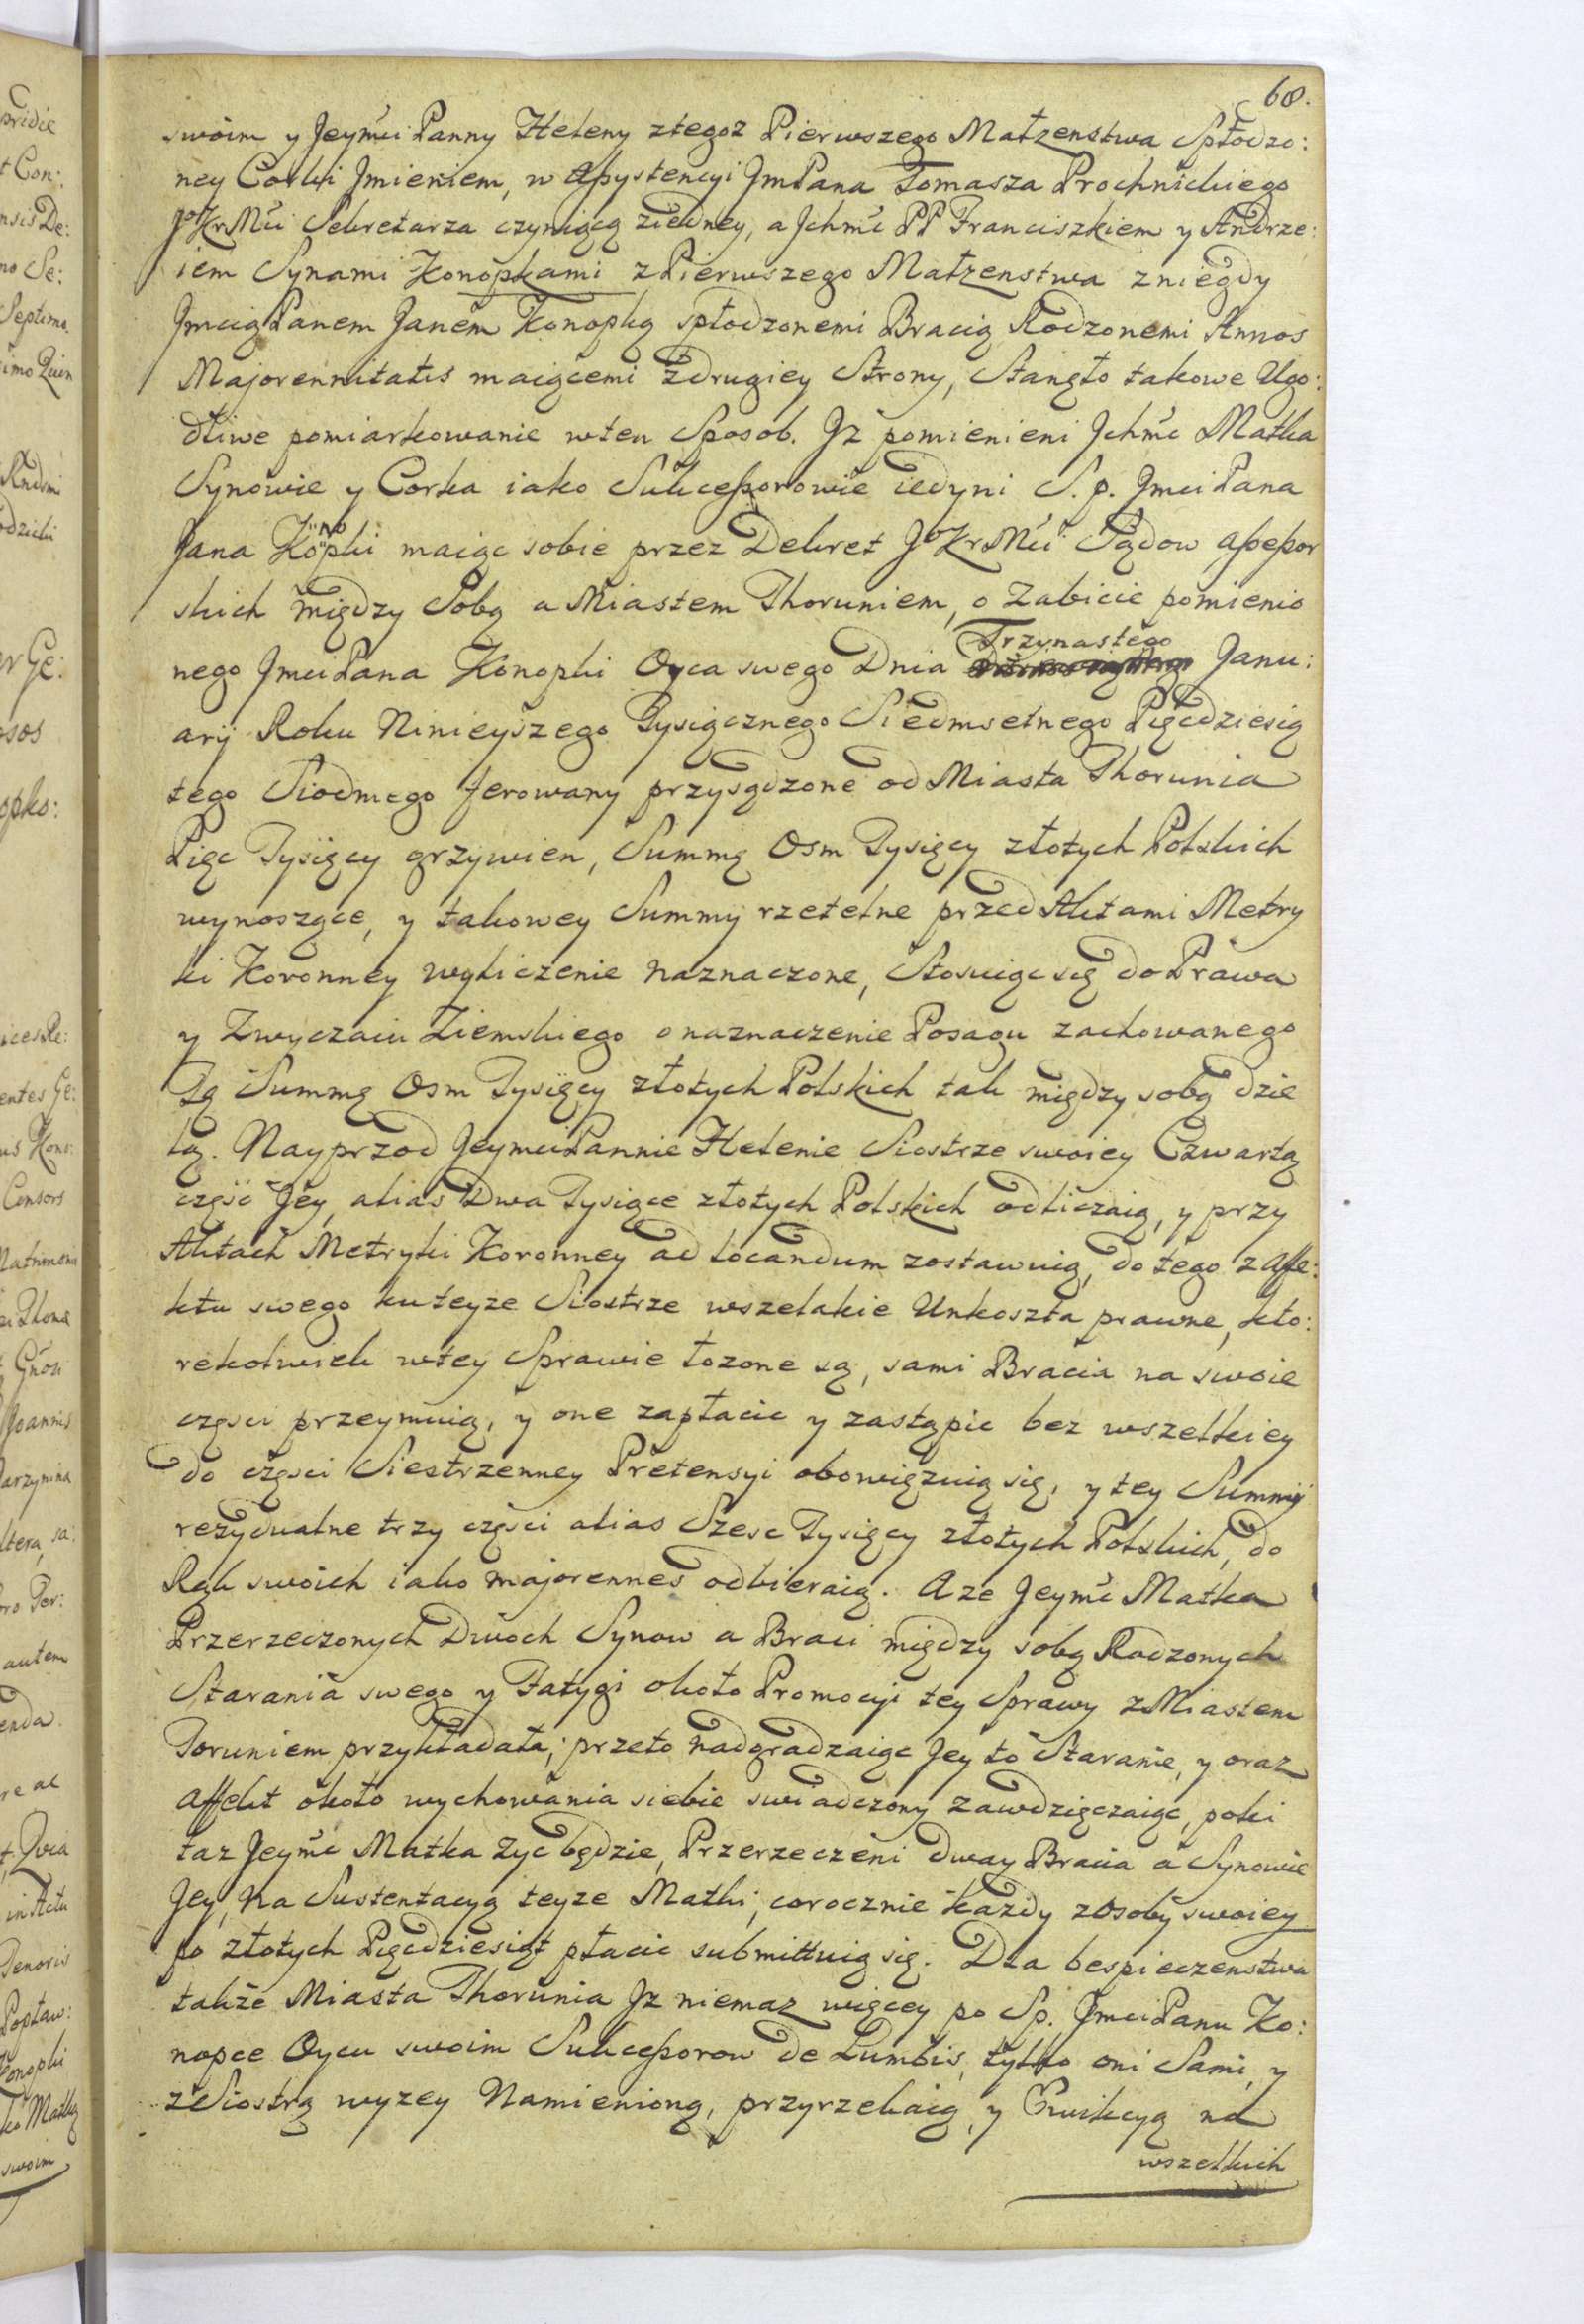 68.
swoim y Jeymći Panny Heleny ztegoz Pierwszego Małzenstwa Spłodzo:
ney Corki Jmieniem, w Assystencyi JmPana Tomasza Prochnickiego
JoKrMći Sekretarza czyniącą ziedney, a Jchmć PP Franciszkiem y Andrze:
iem Synami Konopkami z Pierwszego Małzenstwa zniegdy
Jmcią Panem Janem Konopką spłodzonemi Bracią Rodzonemi Annos
Majorennitatis maiącemi zdrugiey Strony, Stanęło takowe Ugo:
dliwe pomiarkowanie wten Sposob. Jz pomienieni Jchmć Matka
Synowie y Corka iako Sukcessorowie iedyni S. p. Jmci Pana
Jana Konopki maiąc sobie przez Dekret JoKrMći Sądow assessor
skich między Sobą a Miastem Thoruniem, o Zabicie pomienio
nego Jmci Pana Konopki Oyca swego Dnia Trzynastego Janu:
arij Roku Ninieyszego Tysiącznego Siedmsetnego Pięcdziesią
tego Siodmego ferowany przysądzone od Miasta Thorunia
Pięc Tysięcy grzywien, Summę Osm Tysięcy złotych Polskich
wynoszące, y takowey Summy rzetelne przed Aktami Metry
ki Koronney wyliczenie naznaczone, Stosuiąc się do Prawa
y Zwyczaiu Ziemskiego o naznaczenie Posagu zachowanego
Tę Summę Osm Tysięcy złotych Polskich tak między sobą dzie
lą. Nayprzod Jeymci Pannie Helenie Siostrze swoiey Czwartą
częsc Jey, alias Dwa Tysiące złotych Polskich odliczaią, y przy
Aktach Metryki Koronney ad locandum zostawuią, do tego z Affe:
ktu swego kuteyze Siostrze wszelakie Unkoszta prawne, kto:
rekolwiek wtey Sprawie łozone są, sami Bracia na swoie
częsci przeymuią, y one zapłacic y zastąpic bez wszelkiey
do częsci Siestrzenney Pretensyi obowięzuią się, y tey Summy
rezydualne trzy częsci alias Szesc Tysięcy złotych Polskich, do
Rąk swoich iako majorennes odbieraią. A ze Jeymć Matka
Przerzeczonych Dwoch Synow a Braci między sobą Rodzonych
Starania swego y Fatygi około Promocyi tey Sprawy z Miastem
Toruniem przykładała; przeto nadgradzaiąc Jey to Staranie, y oraz
affekt około wychowania siebie swiadczony zawdzięczaiąc, poki
taz Jeymć Matka zyc będzie, Przerzeczeni dway Bracia a Synowie
Jey, na Sustentacyą teyze Matki, corocznie kazdy zOsoby swoiey
po złotych Pięcdziesiąt płacic submittuią się. Dla bespieczenstwa
takze Miasta Thorunia Jz niemasz więcey po Sp. Jmci Panu Ko:
nopce Oycu swoim Sukcessorow de Lumbis, tylko oni Sami, y
zSiostrą wyzey Namienioną, przyrzekaią, y Ewikcyą na
wszelkich